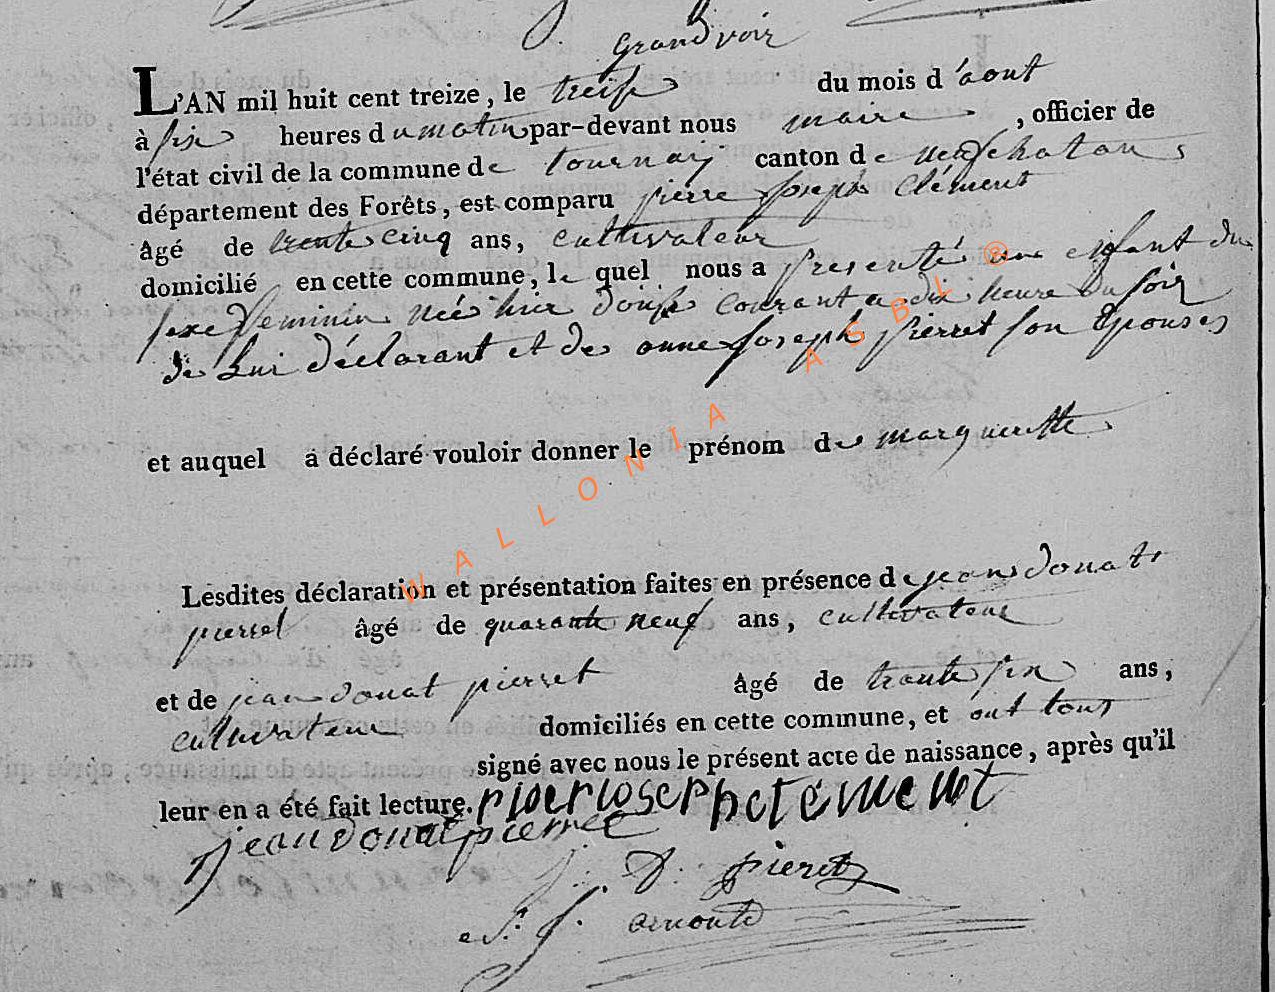 Grandvoir
L'AN mil huit cent treize, le treise du mois d'aout
à six heures du matin par-devant nous maire, officier de
l'état civil de la commune de tournay canton de neufchatau
département des Forêts, est comparu pierre joseph Clément
âgé de trente cinq ans, cultivateur
domicilié en cette commune, le quel nous a presenté une enfant du
sexe feminin née hier douse courant a dix heure du soir
de Lui déclarant et de anne joseph pierret son Epouses
et auquel a déclaré vouloir donner le prénom de marguerite
Lesdites déclaration et présentation faites en présence de jean donat
pierret âgé de quarante neuf ans, cultivateur
et de jean donat pierret âgé de trante six ans,
cultivateur domiciliés en cette commune, et ont tous
signé avec nous le présent acte de naissance, après qu'il
leur en a été fait lecture. pierr joseph clement
jean donat pierret
J. D. pieret
J. arnould
WALLONIA ASBL ®